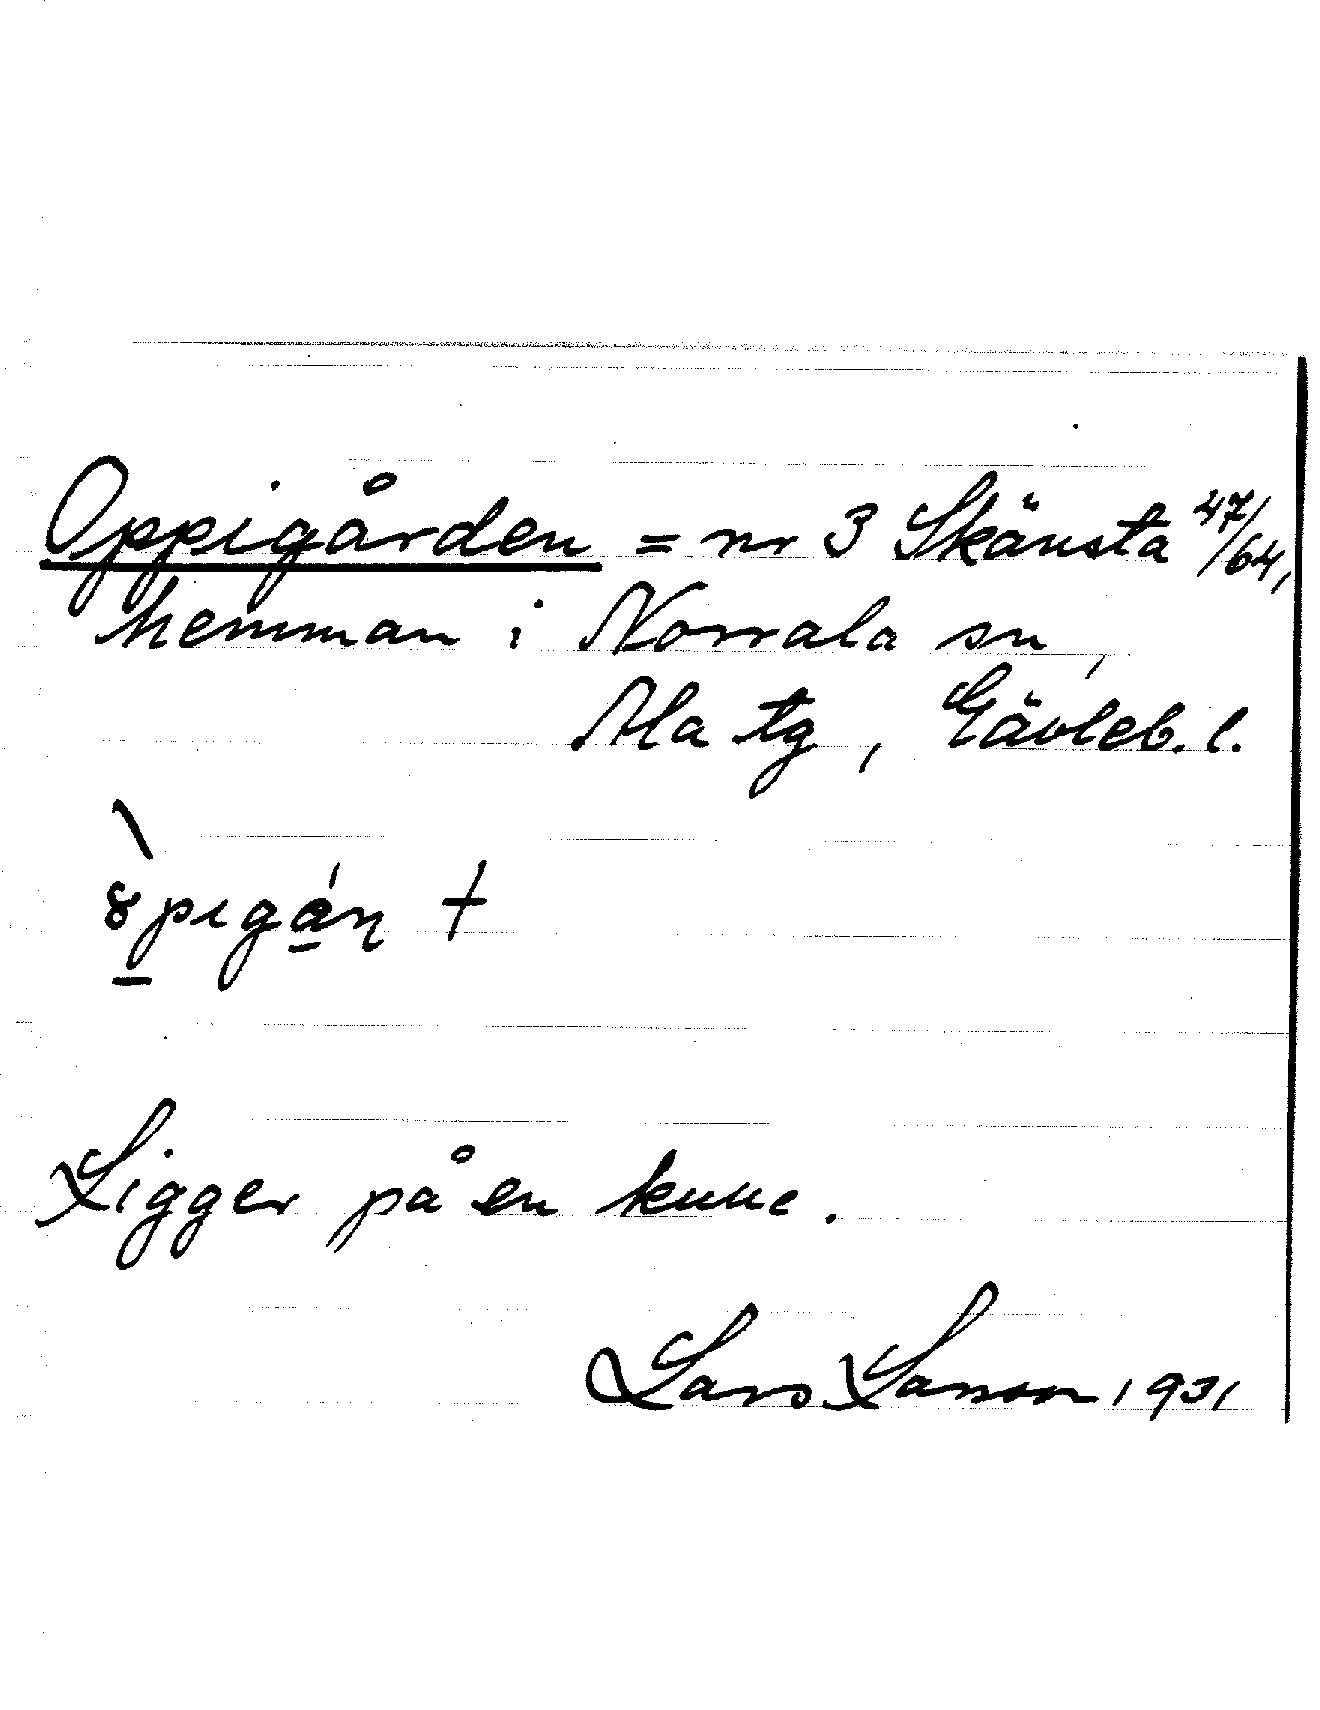 Oppigården = nr 3 Skänsta 47/64,
hemman i Norrala sn,
Ala tg, Gävleb. l.
ȣpigán †
Ligger på en kulle.
Lars Larsson 1931